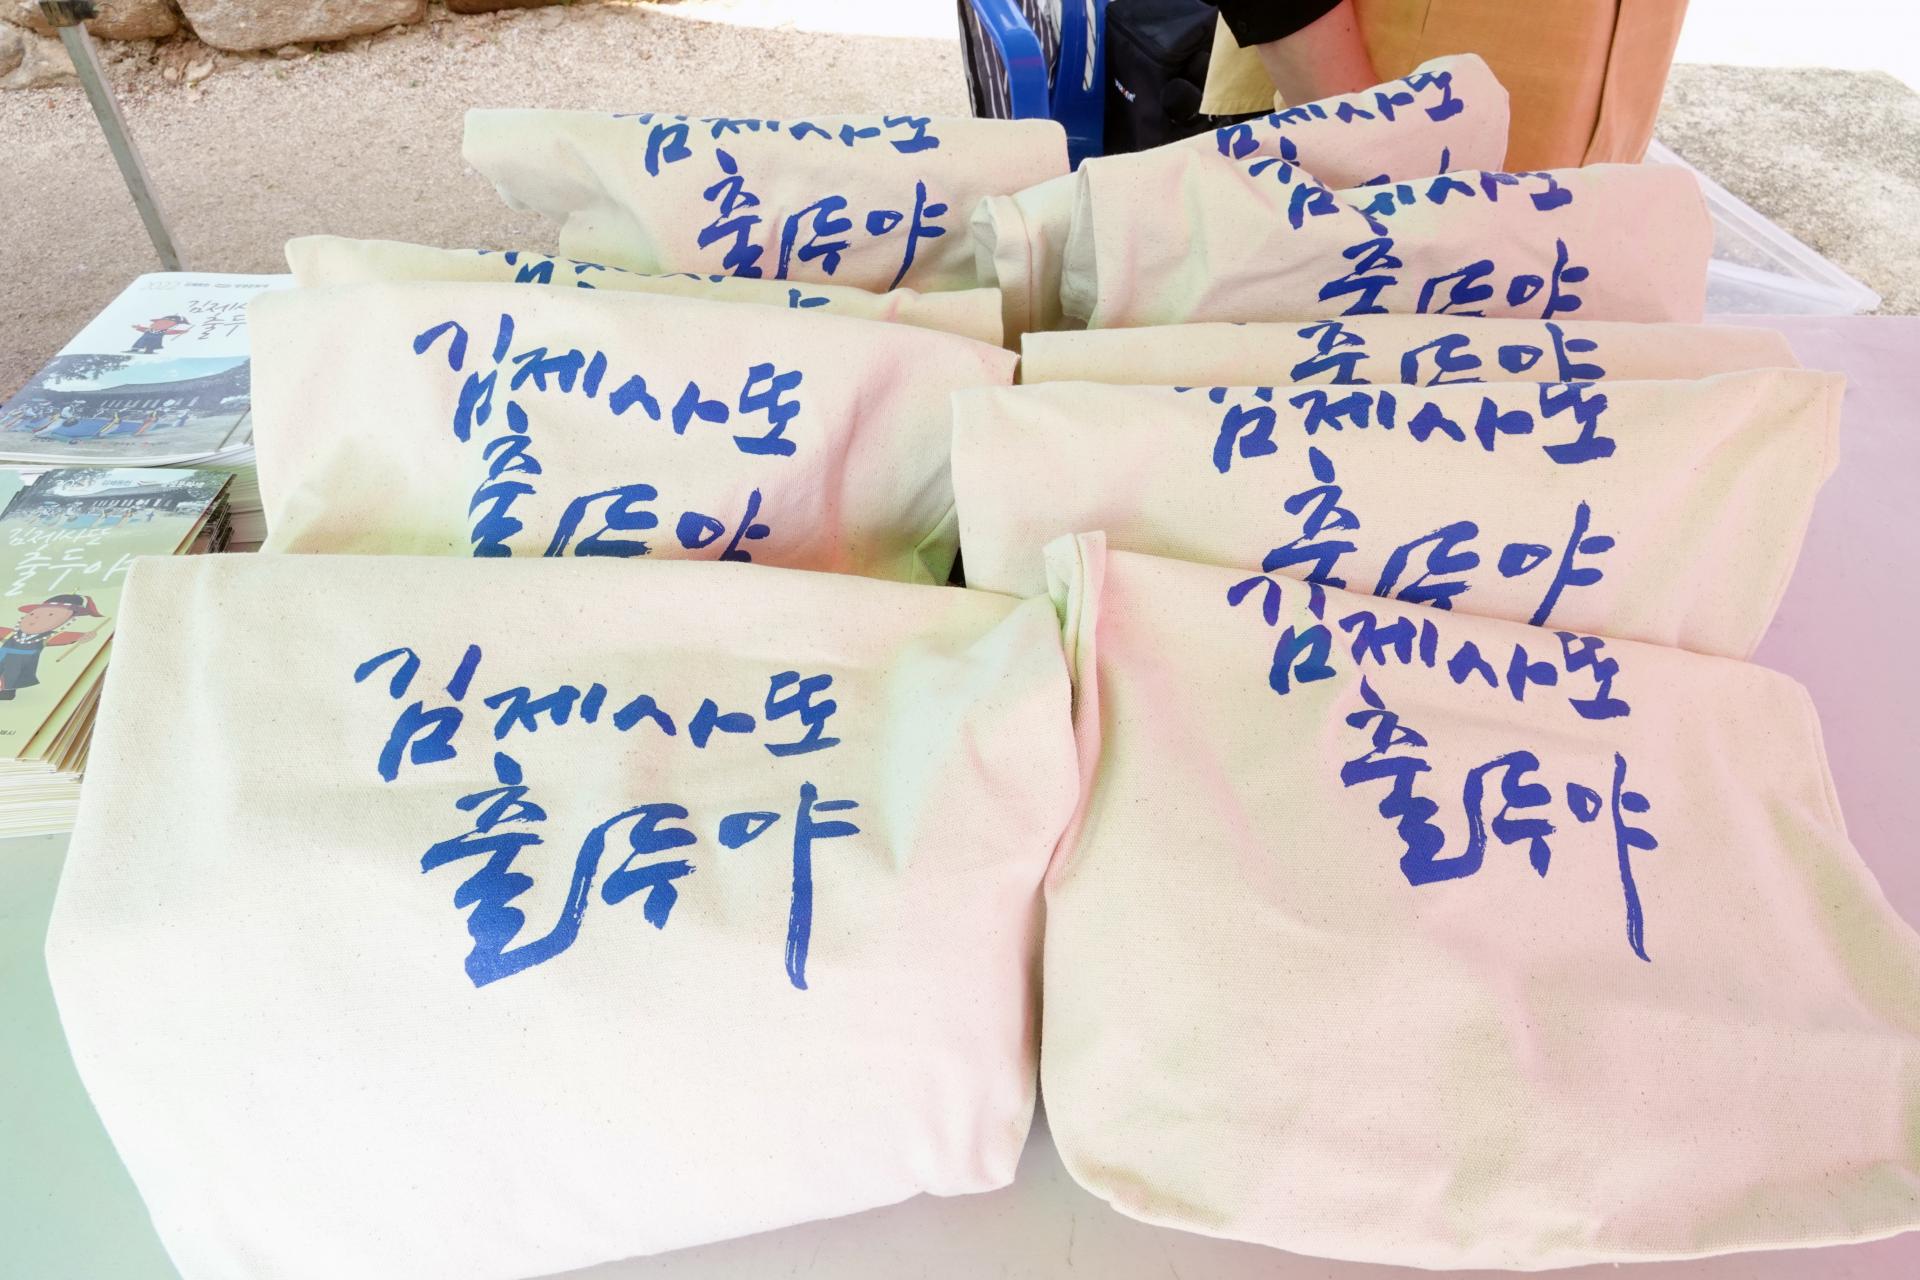 김제사또
출두야
김제사또
출두야
김제사또
출두야
김제사또
출두야
김제사또
출두야
김제사또
출두야
김제사또
출두야
출두야
2022
김제사또
출두
김제사또
출두야